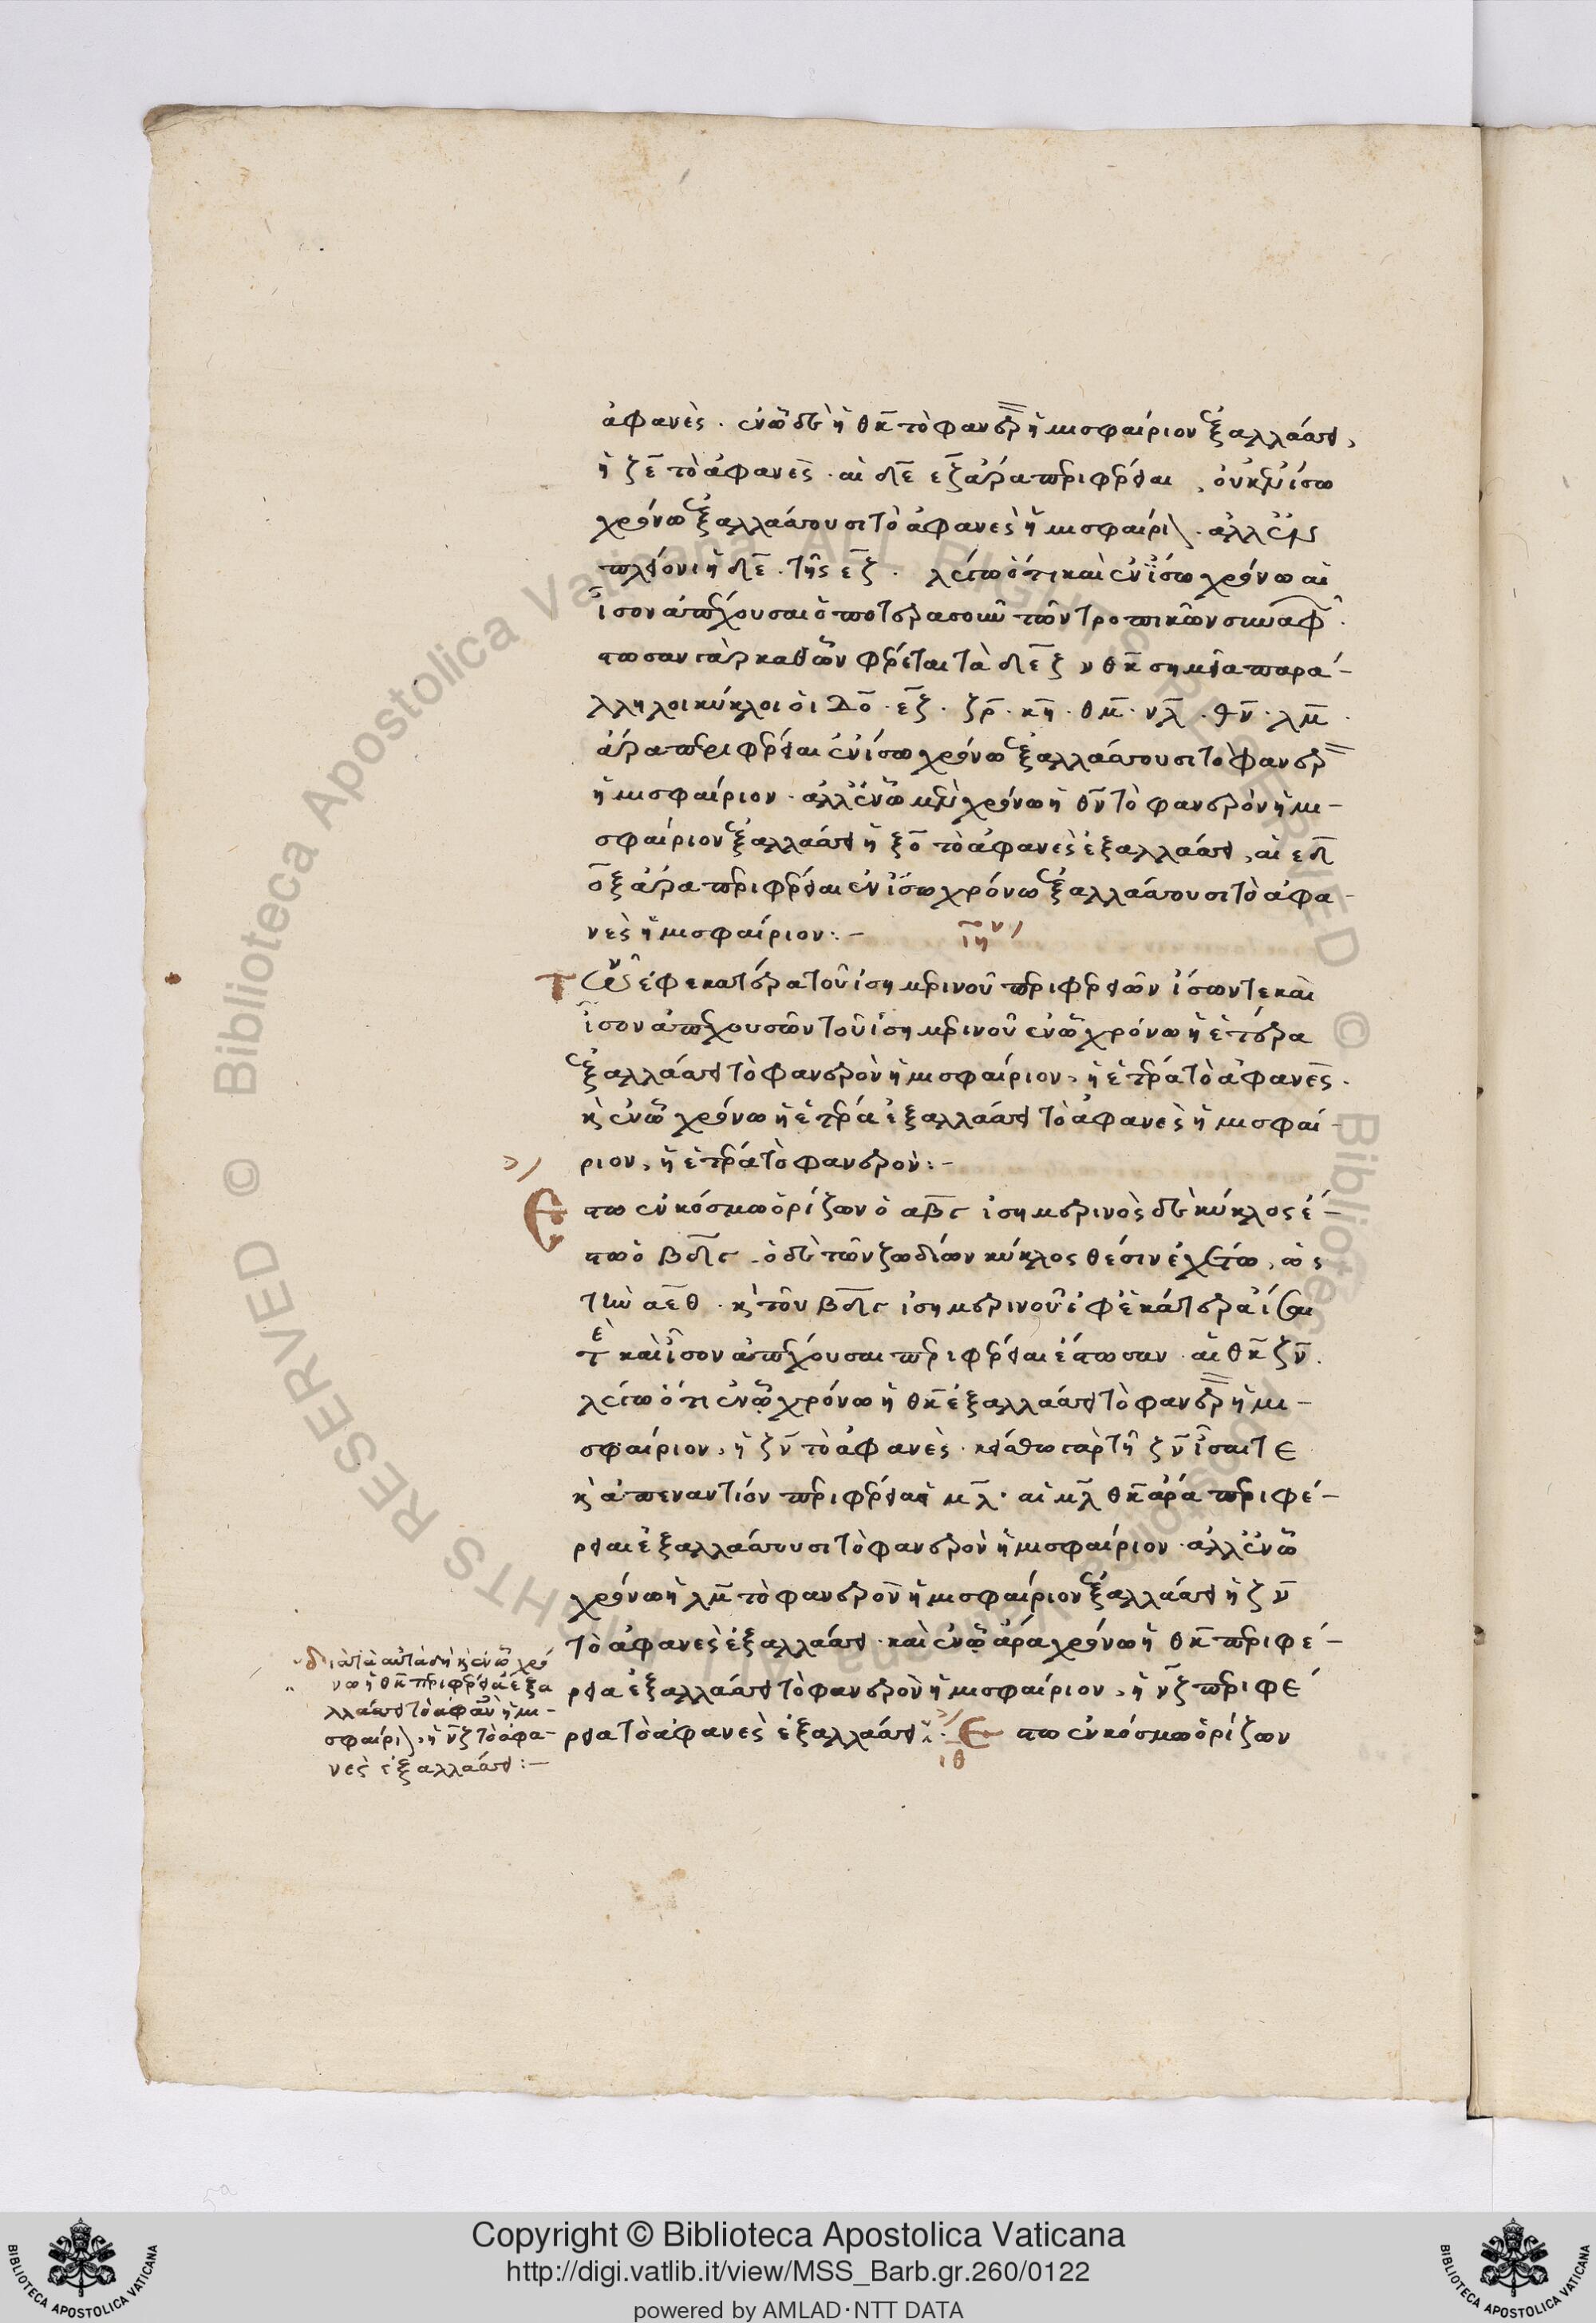 ἀφανὲς. ἐν ᾧ δὲ ἡ θκ τὸ φανερὸν ἡμισφαίριον ἐξαλλάσσει,
ἡ ζε τὸ ἀφανές. αἱ δε εζ ἄρα περιφέρειαι, οὐκ ἐν ἴσῳ
χρόνῳ ἐξαλλάσσουσι τὸ ἀφανὲς ἡμισφαίριον. ἀλλ' ἐν
πλείονι ἡ δε. τῆς εζ. λέγω ὅτι καὶ ἐν ἴσῳ χρόνῳ αἱ
ἴσον ἀπέχουσαι ὁποτερασοῦν τῶν τροπικῶν συναφῶν.
ἔστωσαν γὰρ καθ' ὧν φέρεται τὰ δ ε ζ ν θ κ σημεῖα παρά-
λληλοι κύκλοι οἱ
ἄρα περιφέρειαι ἐν ἴσῳ χρόνῳ ἐξαλλάσσουσι τὸ φανερὸν
ἡμισφαίριον. ἀλλ' ἐν ᾧ μὲν χρόνῳ ἡ θν τὸ φανερὸν ἡμι-
σφαίριον ἐξαλλάσσει ἡ ξο τὸ ἀφανὲς ἐξαλλάσσει, αἱ εδ
οξ ἄρα περιφέρειαι ἐν ἴσῳ χρόνῳ ἐξαλλάσσουσι τὸ ἀφα-
νὲς ἡμισφαίριον:-
ιη
Τῶν ἐφ' ἑκάτερα τοῦ ἰσημερινοῦ περιφερειῶν ἴσων τε καὶ
ἴσον ἀπεχουσῶν τοῦ ἰσημερινοῦ ἐν ᾧ χρόνῳ ἡ ἑτέρα
ἐξαλλάσσει τὸ φανερὸν ἡμισφαίριον, ἡ ἑτέρα τὸ ἀφανές.
καὶ ἐν ᾧ χρόνῳ ἡ ἑτέρα ἐξαλλάσσει τὸ ἀφανὲς ἡμισφαί-
ριον, ἡ ἑτέρα τὸ φανερόν:-
Ἔστω ἐν κόσμῳ ὁρίζων ὁ αβγ ἰσημερινὸς δὲ κύκλος ἔ-
στω ὁ βδγ. ὁ δὲ τῶν ζωδίων κύκλος θέσιν ἐχέτω, ὡς
τὴν αεθ. καὶ τοῦ βδγ ἰσημερινοῦ ἐφ' ἑκάτερα ἴσαι
τε καὶ ἴσον ἀπέχουσαι περιφέρειαι ἔστωσαν αἱ θκ ζν.
λέγω ὅτι ἐν ᾧ χρόνῳ ἡ θκ ἐξαλλάσσει τὸ φανερὸν ἡμι-
σφαίριον, ἡ ζν τὸ ἀφανὲς. κείσθω γὰρ τῇ ζν ἴση τε
καὶ ἀπεναντίον περιφέρεια ἡ μλ. αἱ μλ θκ ἄρα περιφέ-
ρειαι ἐξαλλάσσουσι τὸ φανερὸν ἡμισφαίριον. ἀλλ' ἐν ᾧ
χρόνῳ ἡ λμ τὸ φανερὸν ἡμισφαίριον ἐξαλλάσσει ἡ ζν
τὸ ἀφανὲς ἐξαλλάσσει. καὶ ἐν ᾧ ἄρα χρόνῳ ἡ θκ περιφέ-
ρεια ἐξαλλάσσει τὸ φανερὸν ἡμισφαίριον, ἡ νζ περιφέ
ρεια τὸ ἀφανὲς ἐξαλλάσσει. Ἔστω ἐν κόσμῳ ὁρίζων
ιθ
διὰ τὰ αὐτὰ δὴ καὶ ἐν ᾧ χρό
νῳ ἡ θκ περιφέρεια ἐξα
λλάσσει τὸ ἀφανὲς ἡμι-
σφαίριον, ἡ νζ τὸ ἀφα-
νὲς ἐξαλλάσσει:-
Copyright © Biblioteca Apostolica Vaticana
http://digi.vatlib.it/view/MSS_Barb.gr.260/0122
powered by AMLAD·NTT DATA
BIBLIOTECA APOSTOLICA VATICANA
BIBLIOTECA APOSTOLICA VATICANA